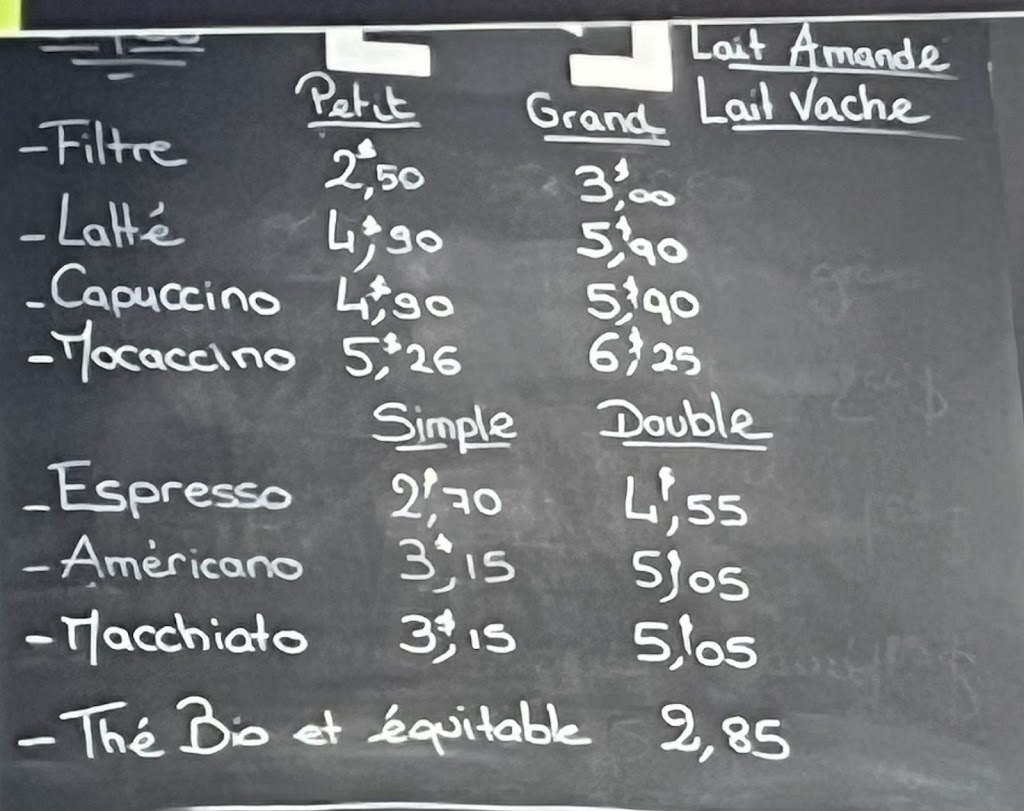 Lait Amande
Lait Vache
Petit Grand
- Filtre 2$,50 3$,00
- Latté 4$,90 5$,90
- Capuccino 4$,90 5$,90
- Mocaccino 5$,26 6$,25
Simple Double
- Espresso 2$,70 4$,55
- Américano 3$,15 5$,05
- Macchiato 3$,15 5$,05
- Thé Bio et équitable 2,85